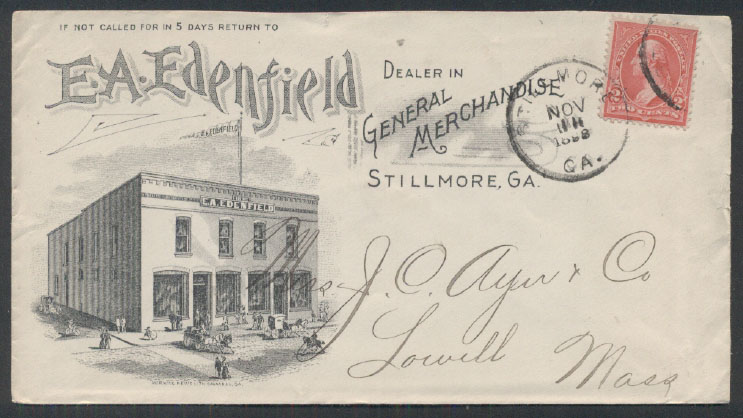 IF NOT CALLED FOR IN 5 DAYS RETURN TO
E.A. Edenfield
DEALER IN
GENERAL
MERCHANDISE
STILLMORE, GA.
STILLMORE
NOV
1898
GA.
TWO CENTS
E.A. EDENFIELD
E.A. EDENFIELD
Mess J. C. Ayer & Co
Lowell
Mass